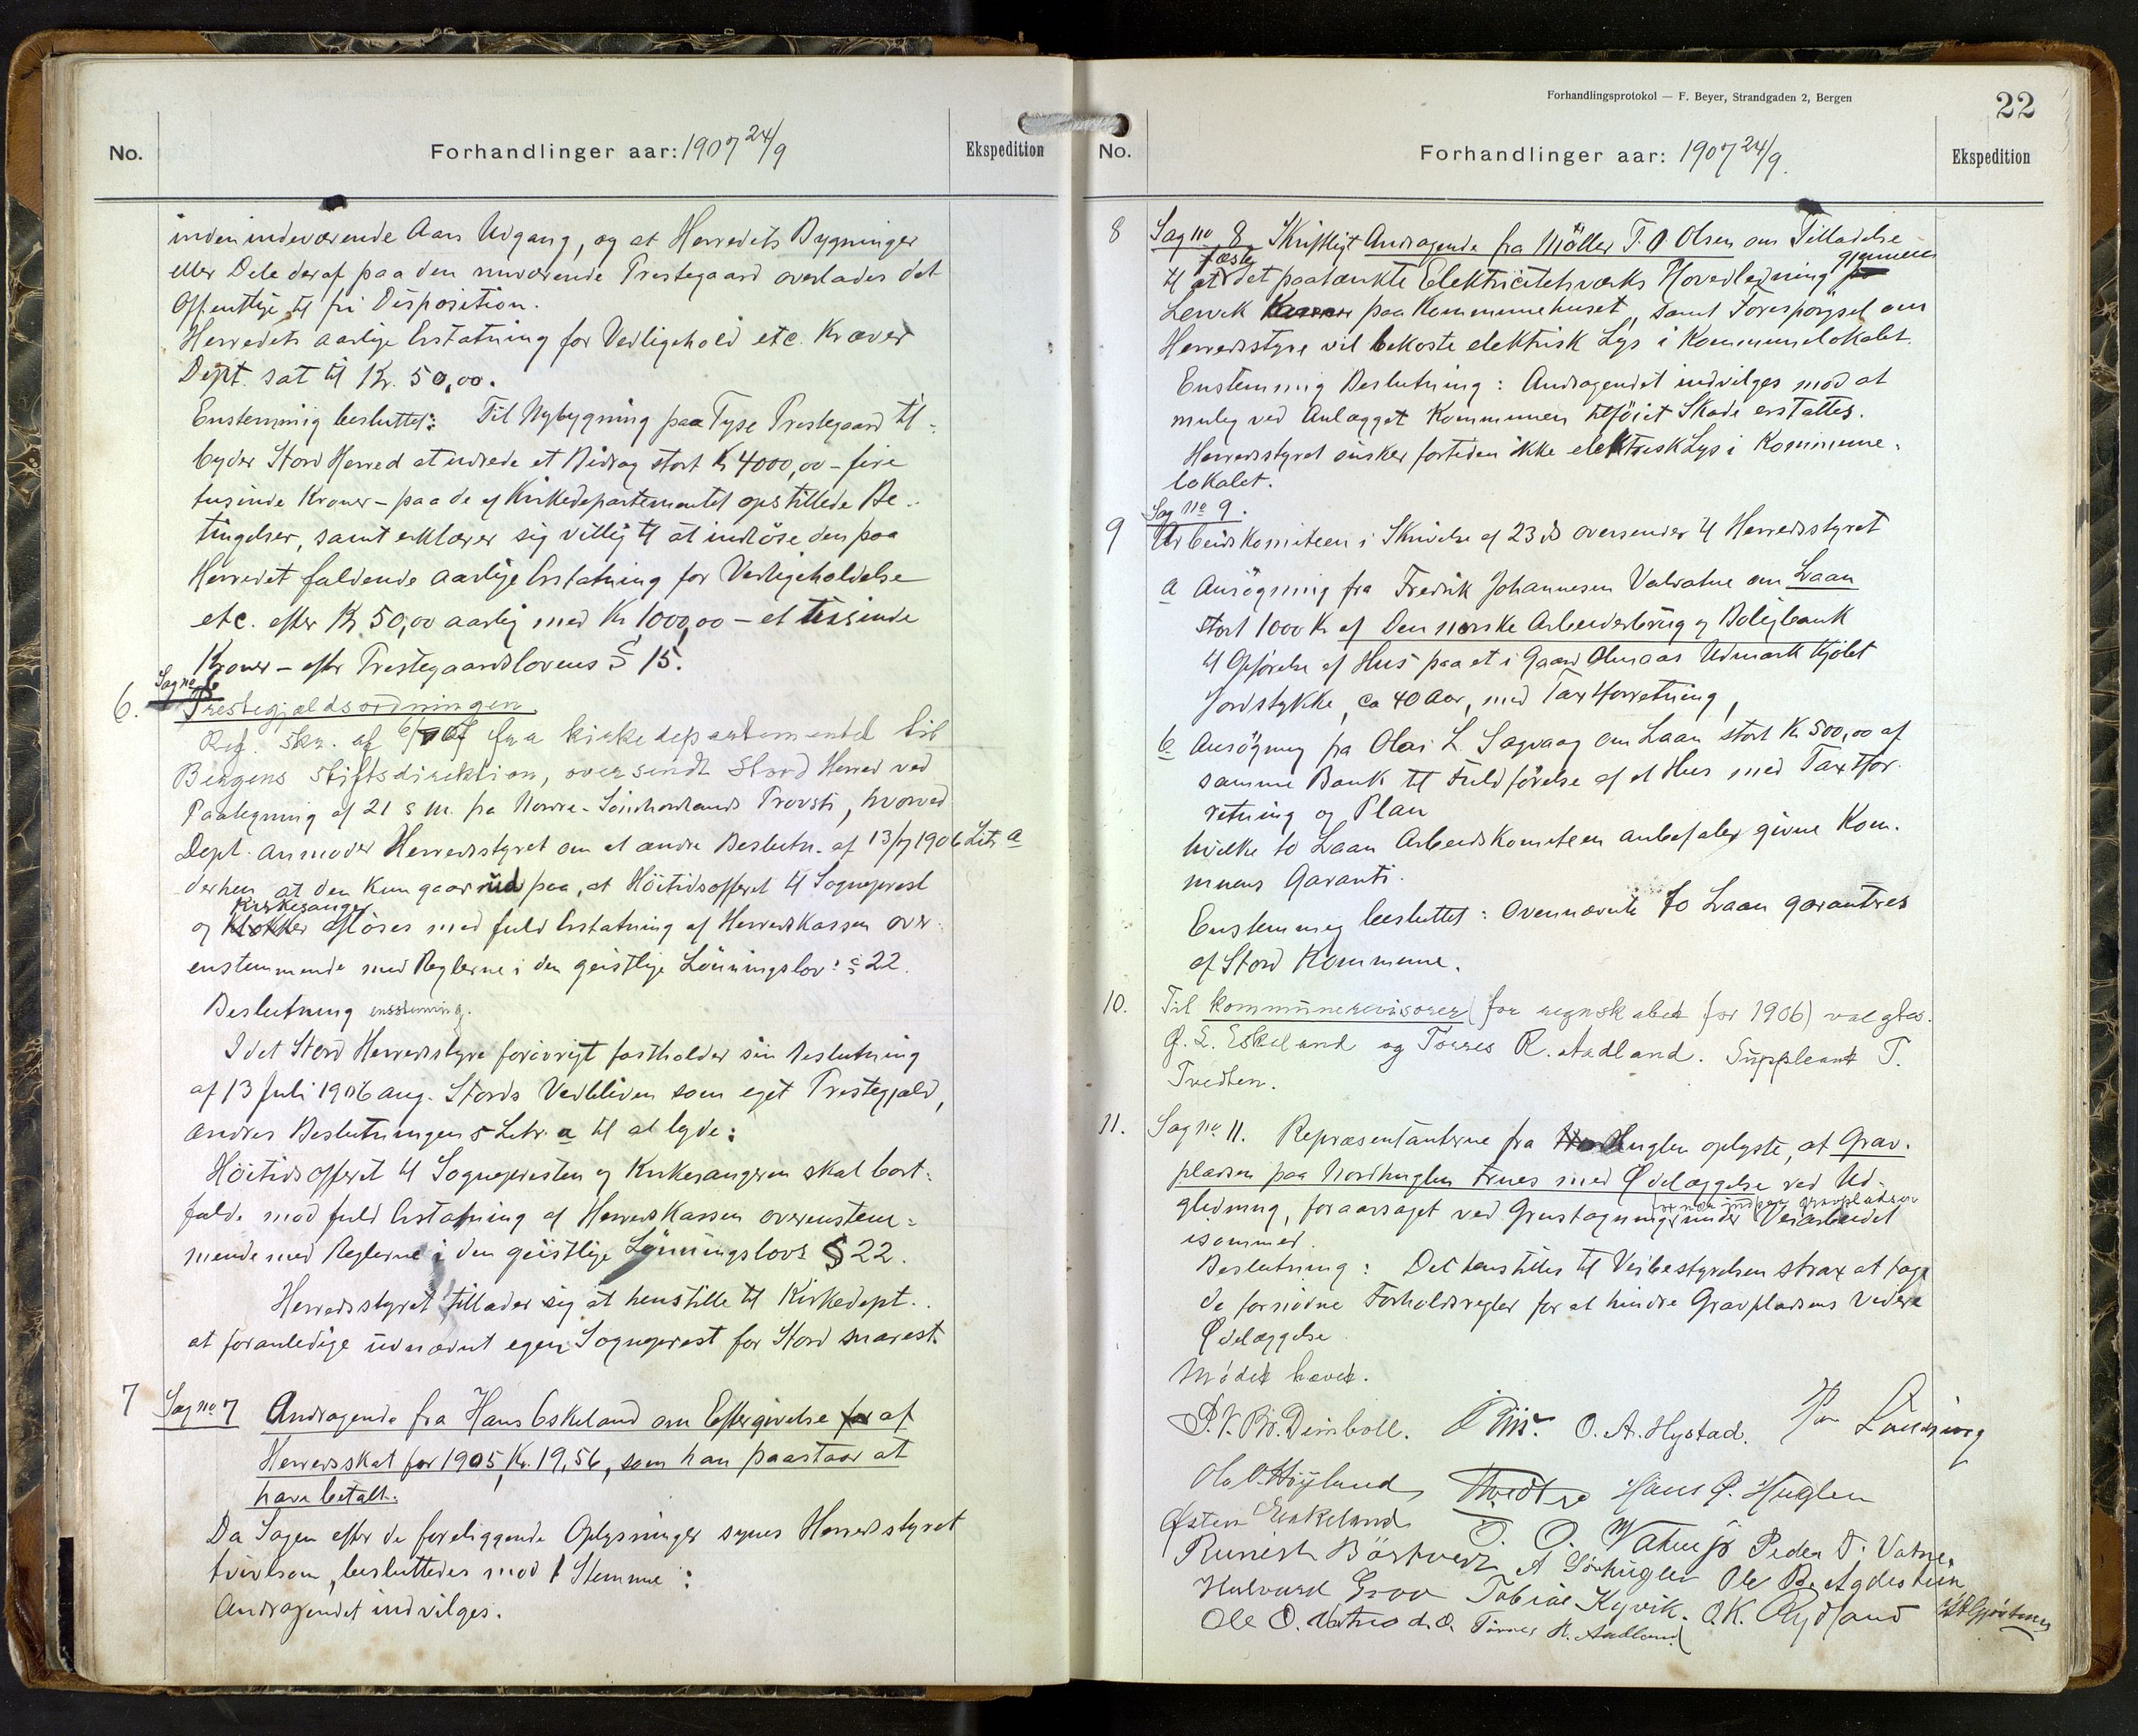 No.
Forhandlinger aar: 1907 24/9
Ekspedition
inden indeværende Aars Udgang, og at Herredets Bygninger
eller Dele deraf paa den nuværende Prestegaard overlades det
Offentlige til fri Disposition.
Herredets aarlige Erstatning for Vedligehold etc. kræver
Dept. sat til Kr. 50,00.
Enstemmig besluttet: Til Nybygning paa Tyse Prestegaard til-
byder Stord Herred at udrede et Bidrag stort Kr 4000,00 - fire
tusinde Kroner - paa de af Kirkedepartementet opstillede Be-
tingelser, samt erklærer sig villig til at indløse den paa
Herredet faldende aarlige Erstatning for Vedligeholdelse
etc. efter Kr 50,00 aarlig med Kr 1000,00 - et tusinde
Kroner - efter Prestegaardslovens § 15.
Sag no 6
6. Prestegjældsordningen.
Ref. skr. af 6/9 07 fra kirkedepartementet til
Bergens stiftsdirektion, oversendt Stord Herred ved
Paategning af 21 s. m. fra Nordre-Søndhordlands Provsti, hvorved
Dept. anmoder Herredsstyret om at ændre Beslutn. af 13/7 1906 Litr a
derhen, at den kun gaar ud paa, at Høitidsofferet til Sogneprest
Kirkesanger
og Klokker afløses med fuld Erstatning af Herredskassen over-
enstemmende med Reglerne i den geistlige Lønningslov: § 22.
Beslutning enstemmig.
Idet Stord Herredsstyre forøvrigt fastholder sin Beslutning
af 13 Juli 1906 ang. Stords Vedbliven som eget Prestegjæld,
ændres Beslutningens Litr. a til at lyde:
Høitidsofferet til Sognepresten og Kirkesangeren skal bort-
falde mod fuld Erstatning af Herredskassen overenstem-
mende med Reglerne i den geistlige Lønningslovs § 22.
Herredsstyret tillader sig at henstille til Kirkedept.
at foranledige udnævnt egen Sogneprest for Stord snarest.
7 Sag no 7 Andragende fra Hans Eskeland om Eftergivelse for af
Herredsskat for 1905, Kr. 19,56, som han paastaar at
have betalt.
Da Sagen efter de foreliggende Oplysninger synes Herredsstyret
tvivlsom, besluttedes mod 1 Stemme:
Andragendet indvilges.
Forhandlingsprotokol — F. Beyer, Strandgaden 2, Bergen
22
No.
Forhandlinger aar: 1907 24/9.
Ekspedition
8 Sag no 8. Skriftligt Andragende fra Møller T. O. Olsen om Tilladelse
fæste gjennem
til at det paatænkte Elektricitetsværks Hovedledning
Lervik paa Kommunehuset, samt Forespørgsel om
Herredsstyre vil bekoste elektrisk Lys i Kommunelokalet.
Enstemmig Beslutning: Andragendet indvilges mod at
mulig ved Anlægget Kommunen tilføiet Skade erstattes.
Herredsstyret ønsker fortiden ikke elektrisk Lys i Kommune-
lokalet.
Sag no 9.
9 Arbeidskomiteen i Skrivelse af 23 ds oversender til Herredsstyret
a Ansøgning fra Fredrik Johannesen Valvatne om Laan
stort 1000 Kr af Den norske Arbeiderbrug og Boligbank
til Opførelse af Hus paa et i Gaard Almaas Udmark kjøbt
Jordstykke, ca 40 Aar, med Taxtforretning,
b Ansøgning fra Olai L Sagvaag om Laan stort Kr 500,00 af
samme Bank til Fuldførelse af et Hus med Taxtfor-
retning og Plan
hvilke to Laan Arbeidskomiteen anbefaler givne Kom-
munens Garanti.
Enstemmig besluttet: Ovennævnte to Laan garantres
af Stord Kommune.
10. Til kommunerevisorer (for regnskabet for 1906) valgtes.
G. L. Eskeland og Torres R. Aadland. Suppleant T.
Tvedten.
11. Sag no. 11. Repræsentanterne fra Huglen oplyste, at Grav-
pladsen paa Nordhuglen trues med Ødelæggelse ved Ud-
glidning, foraarsaget ved Grustagning under Veiarbeidet
isommer.
Beslutning: Det henstilles til Veibestyrelsen strax at tage
de fornødne Forholdsregler for at hindre Gravpladsens videre
Ødelæggelse
Mødet hævet.
P. V. Br. Deinboll. O. A. Hystad.
Ola O. Høyland Tvedten Hans G. Huglen
Østen Eskeland O. O. Vatne jr Peder T. Vatne
Runich Børtveit A Sørhuglen Ole B. Agdestein
Halvard Grov Tobias Kyvik. O. K. Rydland
Ole O. Vatne d. O. Torres R. Aadland